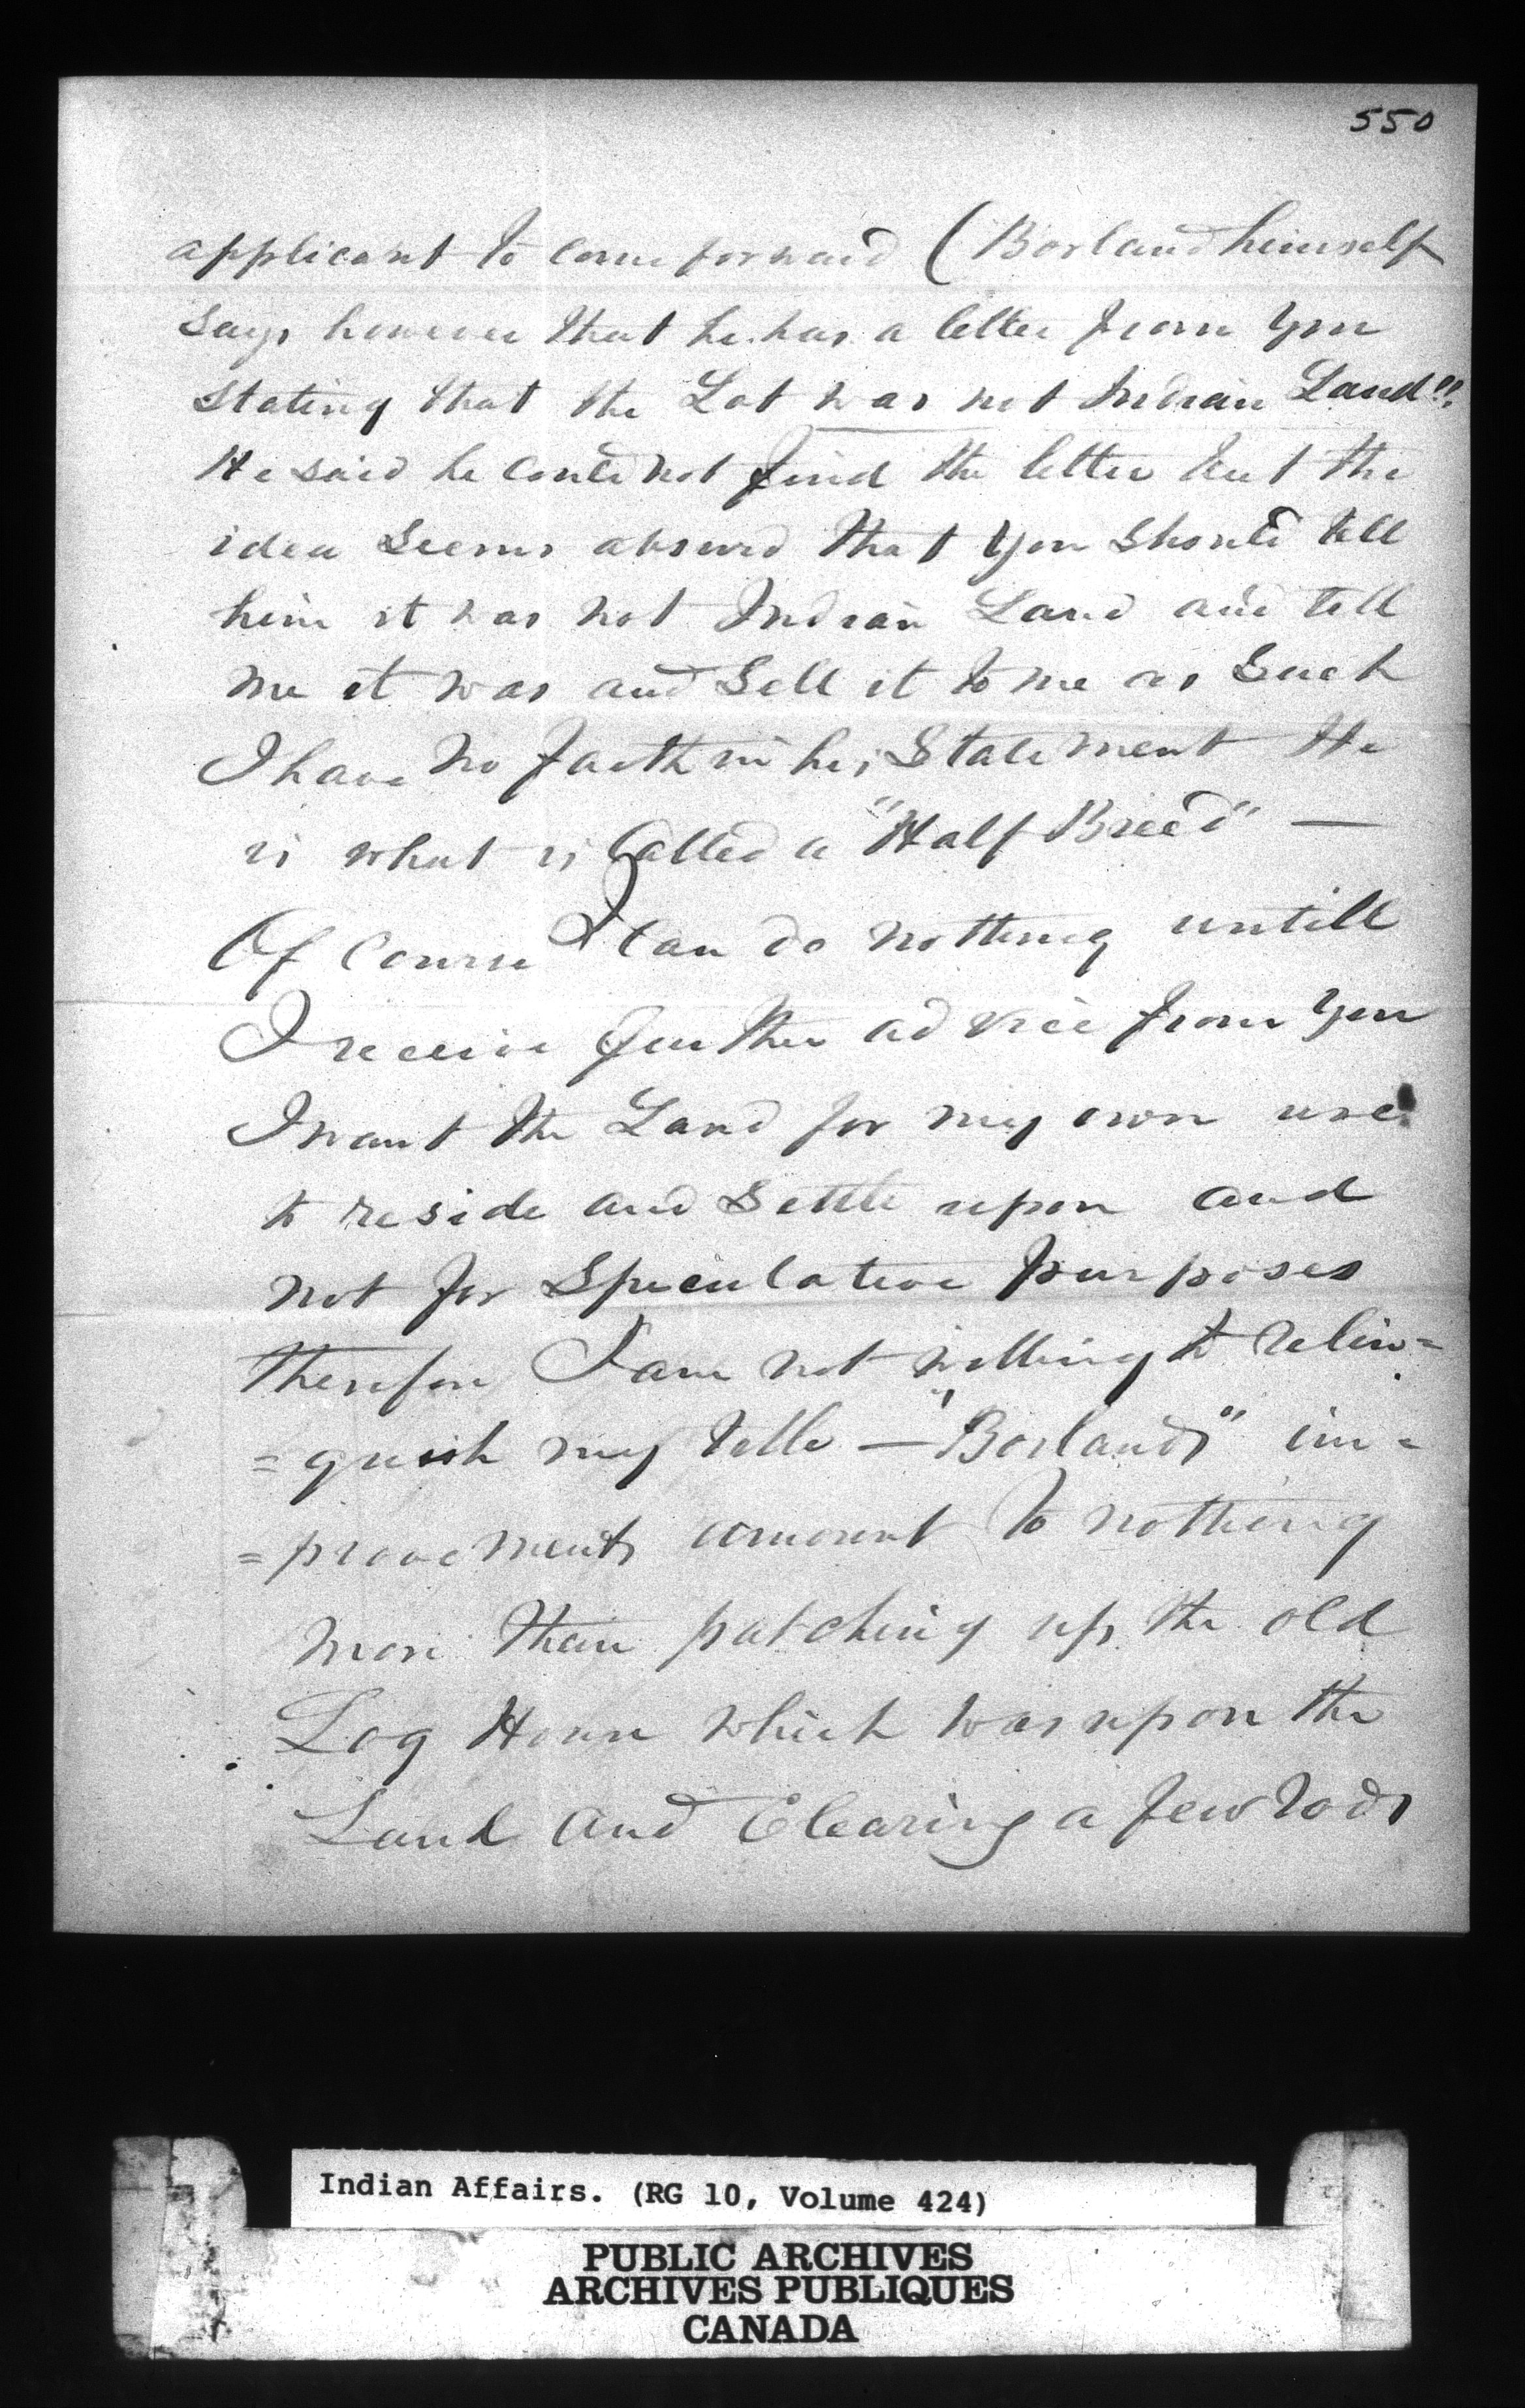 550
applicant to come forward (Borland himself
says however that he has a letter from you
stating that the Lot was not Indian Land".
He said he could not find the letter but the
idea seems absurd that you should tell
him it was not Indian Land and tell
me it was and Sell it to me as Such
I have no faith in his Statement He
is what is Called a "Half Breed" —
Of Course I Can do nothing untill
I receive further advice from you
I want the Land for my own use
to reside and Settle upon and
not for Speculative purposes
therefore I am not willing to relin=
=quish my title — "Borlands" im=
=provements amount to nothing
more than patching up the old
Log House which was upon the
Land and Clearing a few rods
Indian Affairs. (RG 10, Volume 424)
PUBLIC ARCHIVES
ARCHIVES PUBLIQUES
CANADA